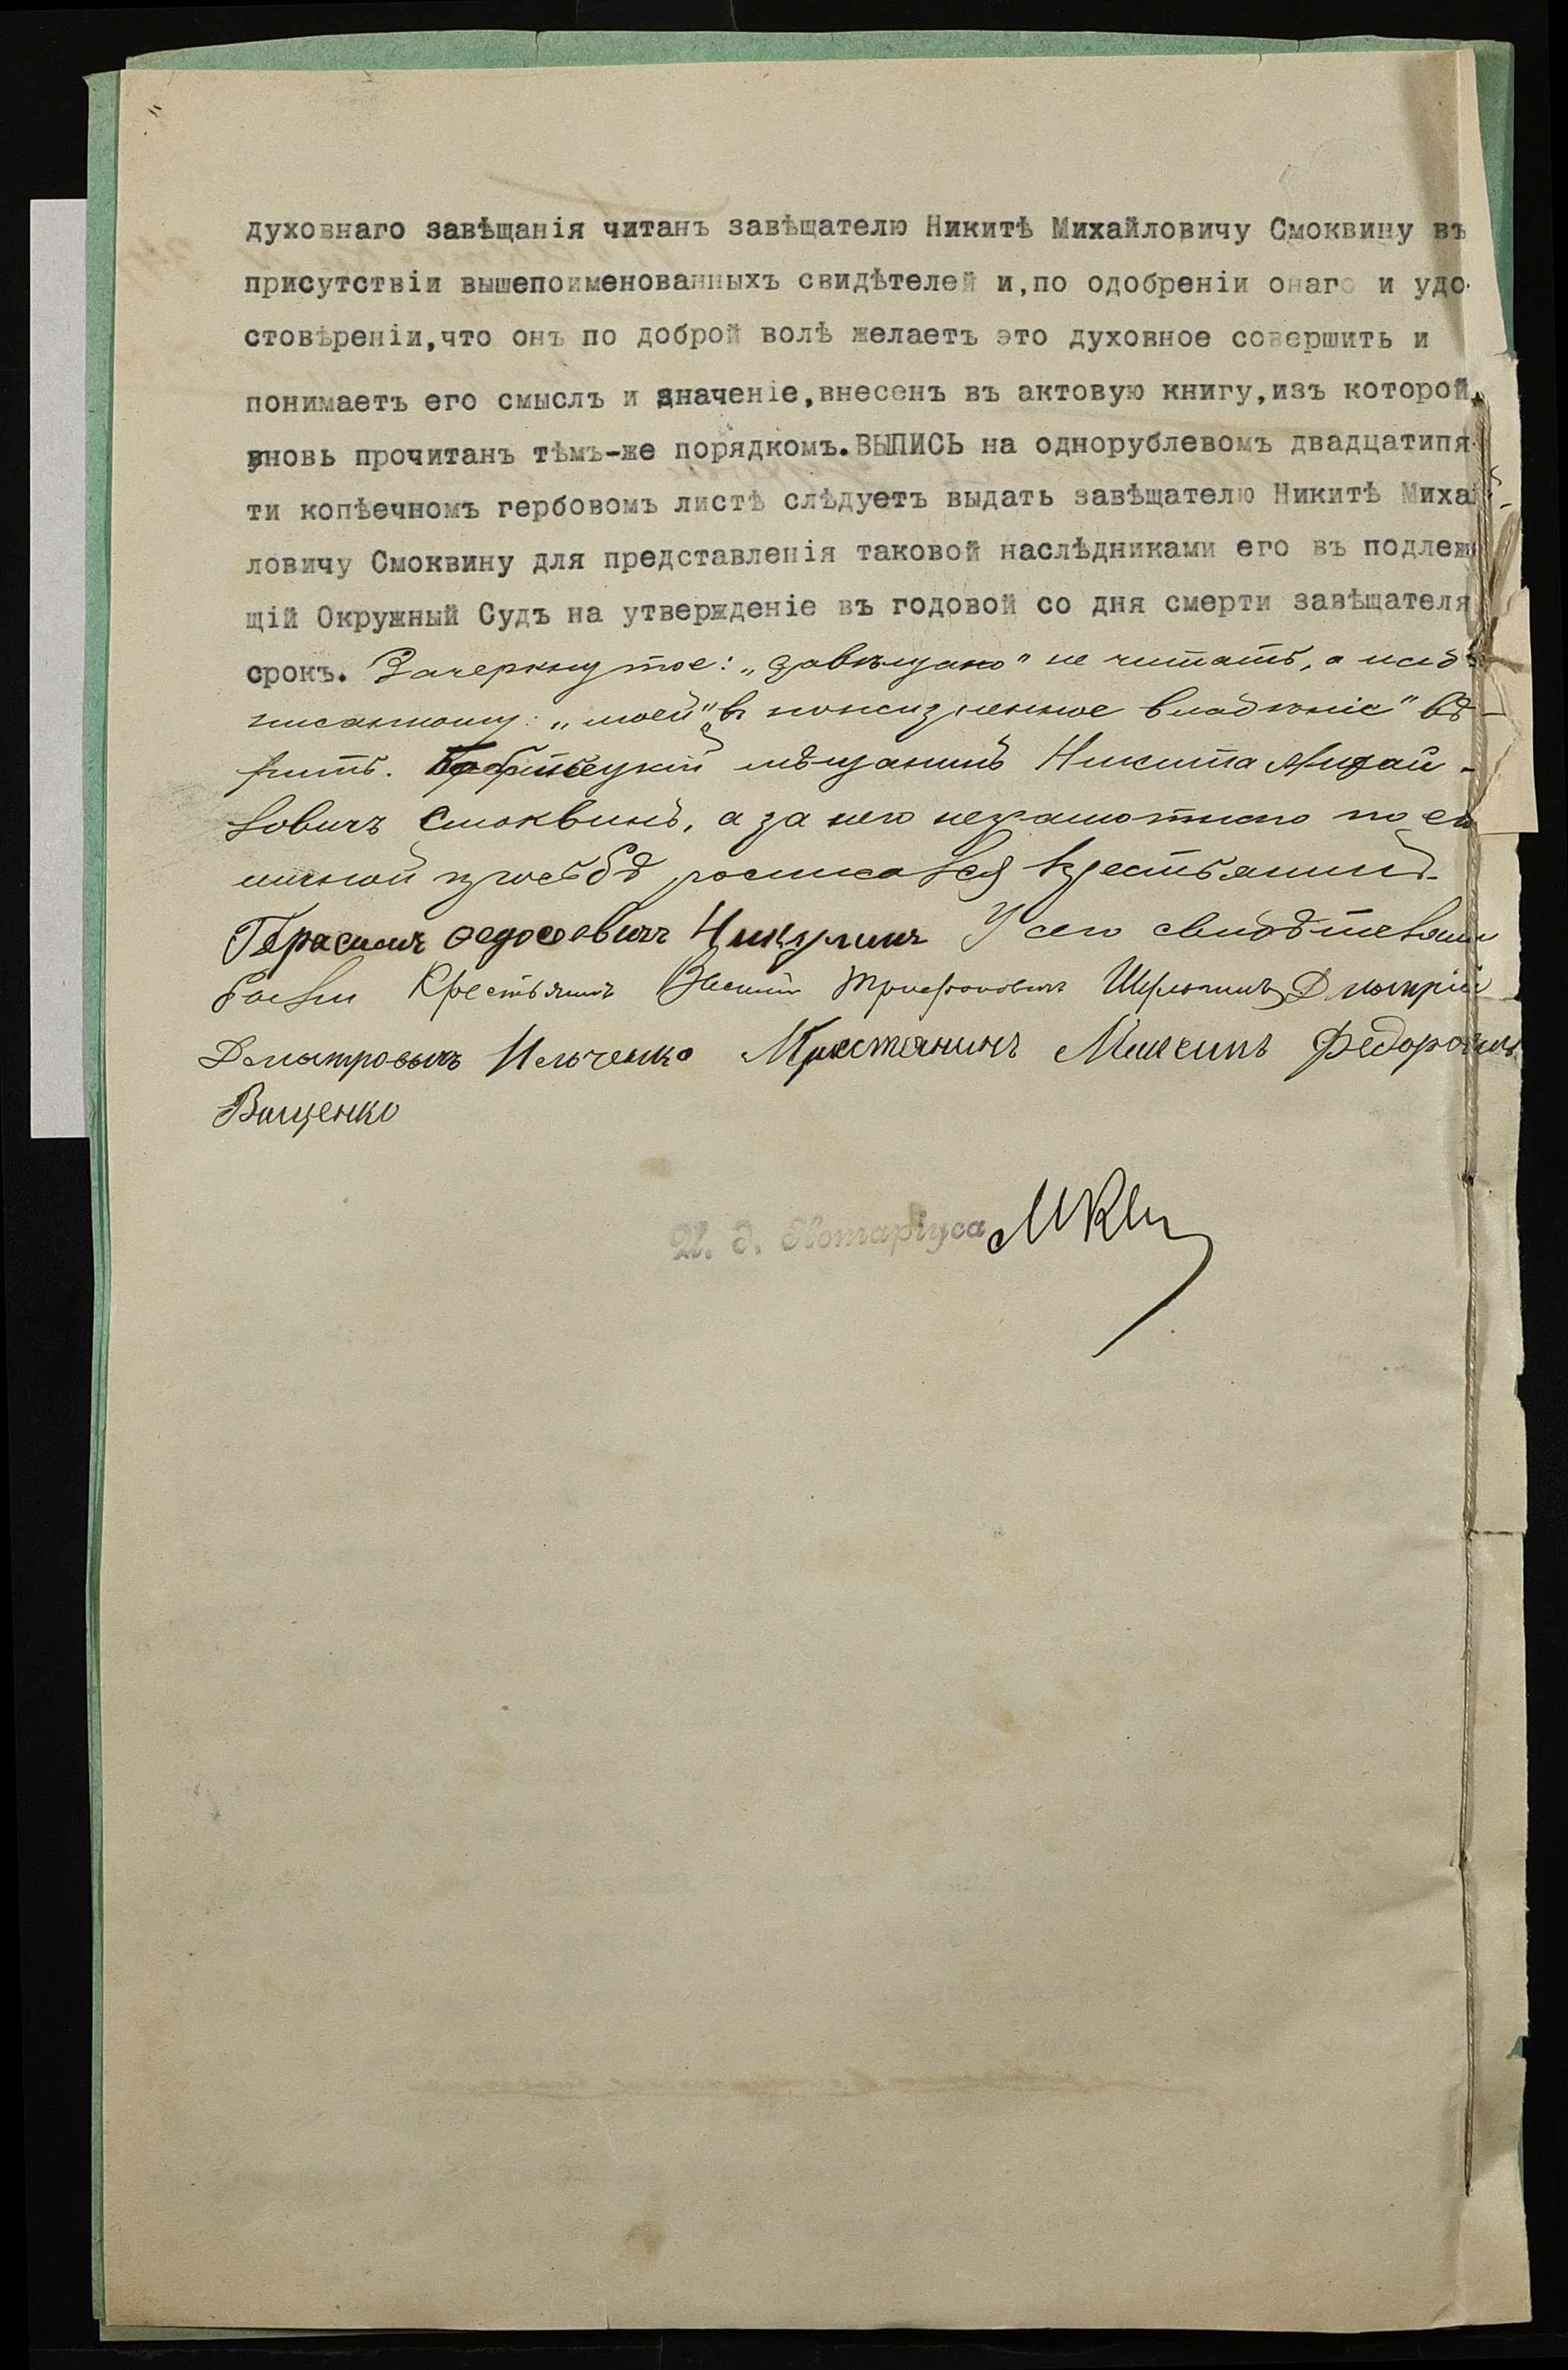 духовнаго завѣщанія читанъ завѣщателю Никитѣ Михайловичу Смоквину въ
присутствіи вышепоименованныхъ свидѣтелей и,по одобреніи онаго и удо-
стовѣреніи,что онъ по доброй волѣ желаетъ это духовное совершить и
понимаетъ его смыслъ и значеніе,внесенъ въ актовую книгу,изъ которой
вновь прочитанъ тѣмъ-же порядкомъ.ВЫПИСЬ на однорублевомъ двадцатипя-
ти копѣечномъ гербовомъ листѣ слѣдуетъ выдать завѣщателю Никитѣ Михай-
ловичу Смоквину для представленія таковой наслѣдниками его въ подлежа
щій Окружный Судъ на утвержденіе въ годовой со дня смерти завѣщателя
срокъ. Зачеркнутое: „завѣщано" не читать, а
писанному: „моей" „въ пожизненное владѣніе" вѣ-
рить. мѣщанинъ Никита Михай-
ловичъ Смоквинъ, а за него неграмотного по его
личной просьбѣ росписался крестьянинъ
Герасимъ Федосеевичъ Никулинъ У сего свидѣтелями
были Крестьянинъ Василій Трифоновичъ Дмитрій
Демитровичъ Ильченко Крестянинъ Максимъ Федоровичъ
Ващенко
И. д. Нотаріуса